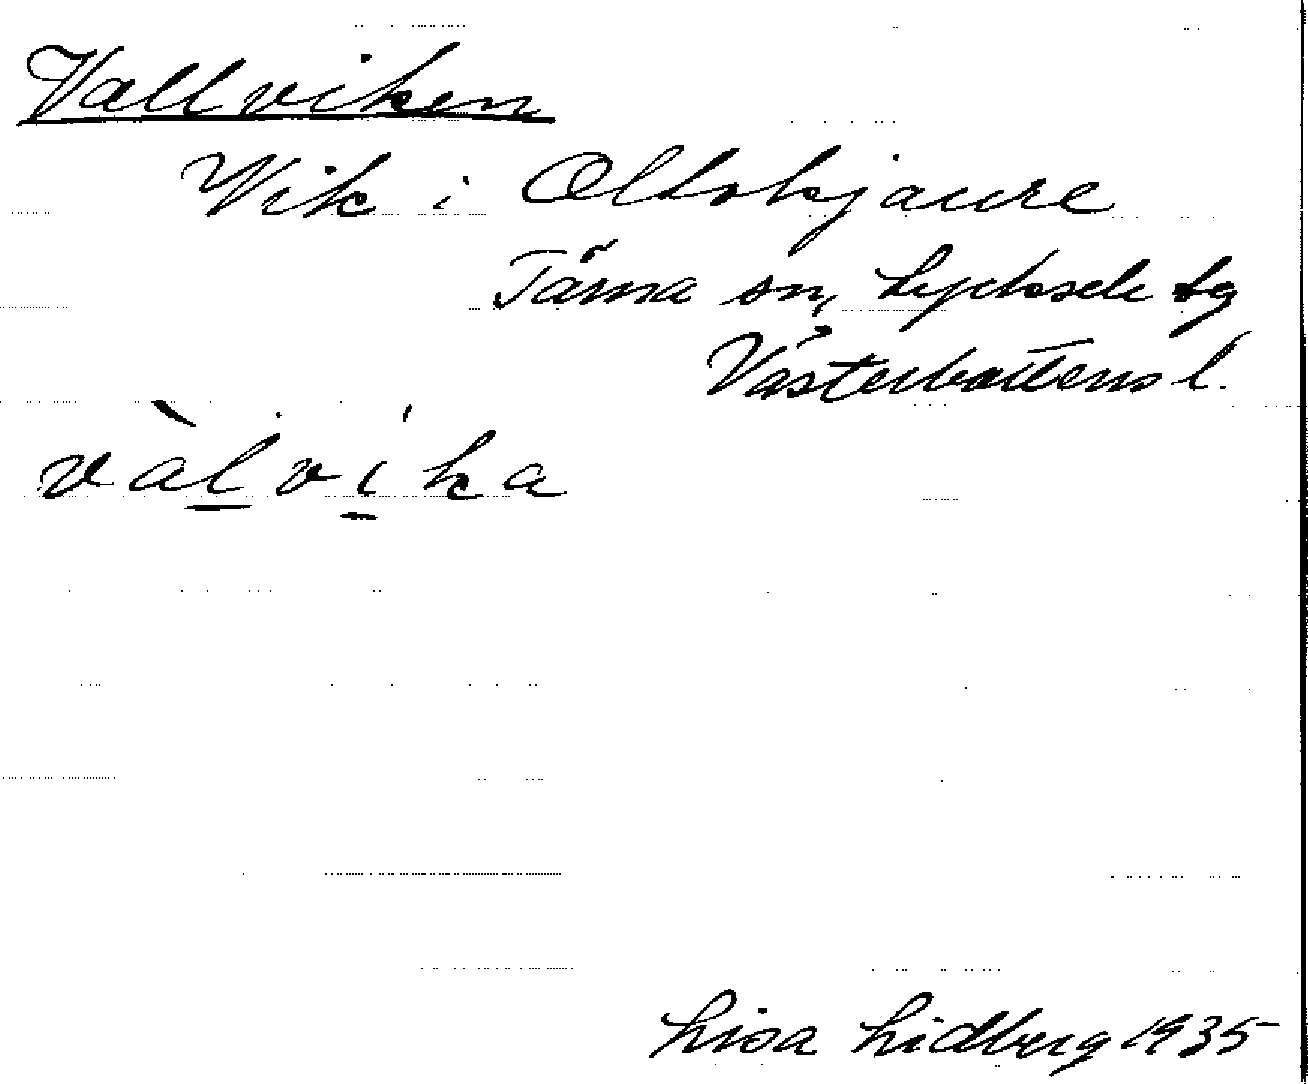 Vallviken
Vik i Oltokjaure
Tärna sn, Lycksele tg
Västerbottens l.
vàlvika
Lisa Lidberg 1935